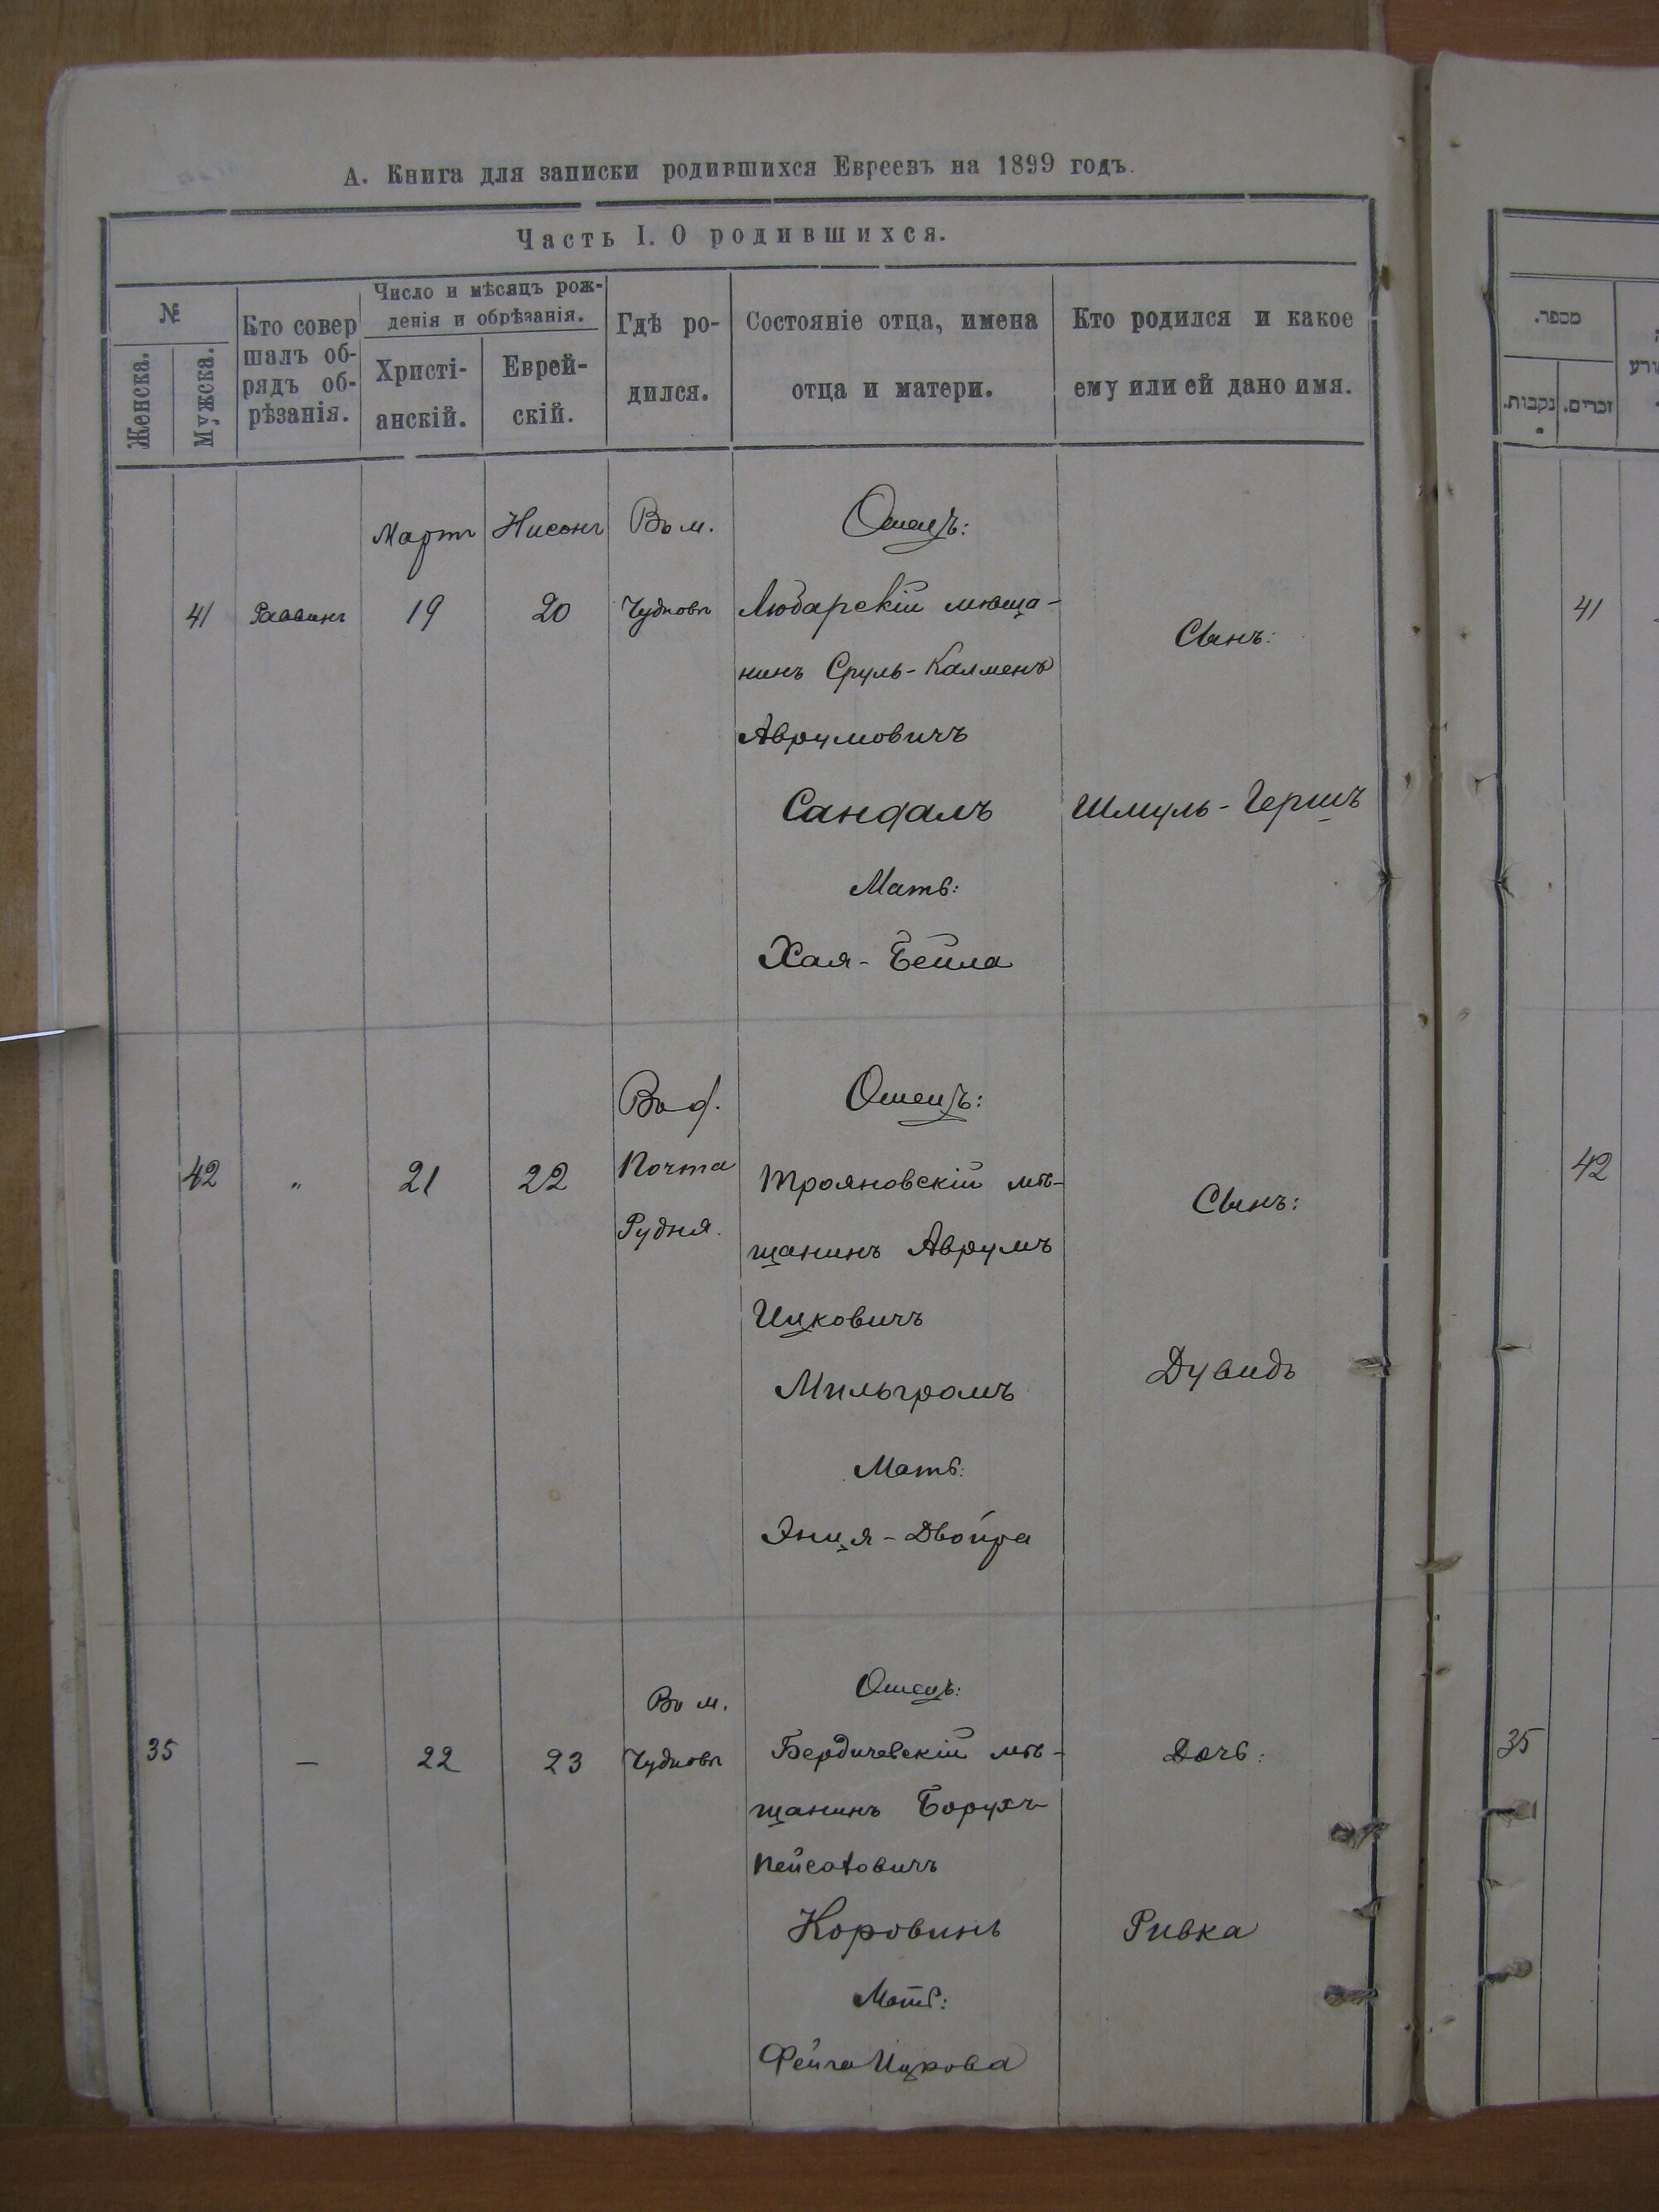 А. Книга для записки родившихся Евреевъ на 1899 годъ.
Часть I. О родившихся.
№
Женска.
Мужска.
Кто совер
шалъ об-
рядъ об-
рѣзанія.
Число и мѣсяцъ рож-
денія и обрѣзанія.
Христі-
анскій.
Еврей-
скій.
Гдѣ ро-
дился.
Состояніе отца, имена
отца и матери.
Кто родился и какое
ему или ей дано имя.
41
Раввинъ
Мартъ
19
Нисонъ
20
Въ м.
Чудновѣ
Отецъ:
Любарскій мѣща-
нинъ Сруль-Калменъ
Аврумовичъ
Сандалъ
Мать:
Хая-Бейла
Сынъ:
Шмуль-Гершъ
42
„
21
22
Въ д.
Почта
Рудня.
Отецъ:
Трояновскій мѣ-
щанинъ Аврумъ
Ицковичъ
Мильгромъ
Мать:
Эниця-Двойра
Сынъ:
Дувидъ
35
—
22
23
Въ м.
Чудновѣ
Отецъ:
Бердичевскій мѣ-
щанинъ Борухъ
Пейсаховичъ
Коровинъ
Мать:
Фейга Ицкова
Дочь:
Ривка
מספר.
נקבות.
זכרים.
41
42
35